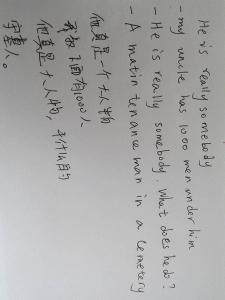 He is really somebody
- my uncle has 1000 men under him
- He is really somebody. What does he do?
- A maintenance man in a cemetery
他真是一个大人物
我叔下面有1000人
他真是大人物,干什么的
守墓人。